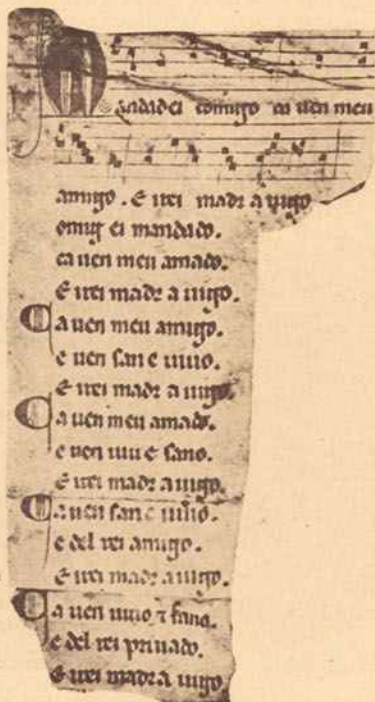 Mandadei comigo ca uen meu
amigo. E irei madr a uigo
omig ei mandado.
ca uen meu amado.
E irei madr a uigo.
Ca uen meu amigo.
e uen san e uiuo.
E irei madr a uigo.
Ca uen meu amado.
e uen uiu e sano.
E irei madr a uigo.
Ca uen san e uiuo.
e del rei amigo.
E irei madr a uigo.
Ca uen uiuo ⁊ sano.
e del rei priuado.
E irei madr a uigo